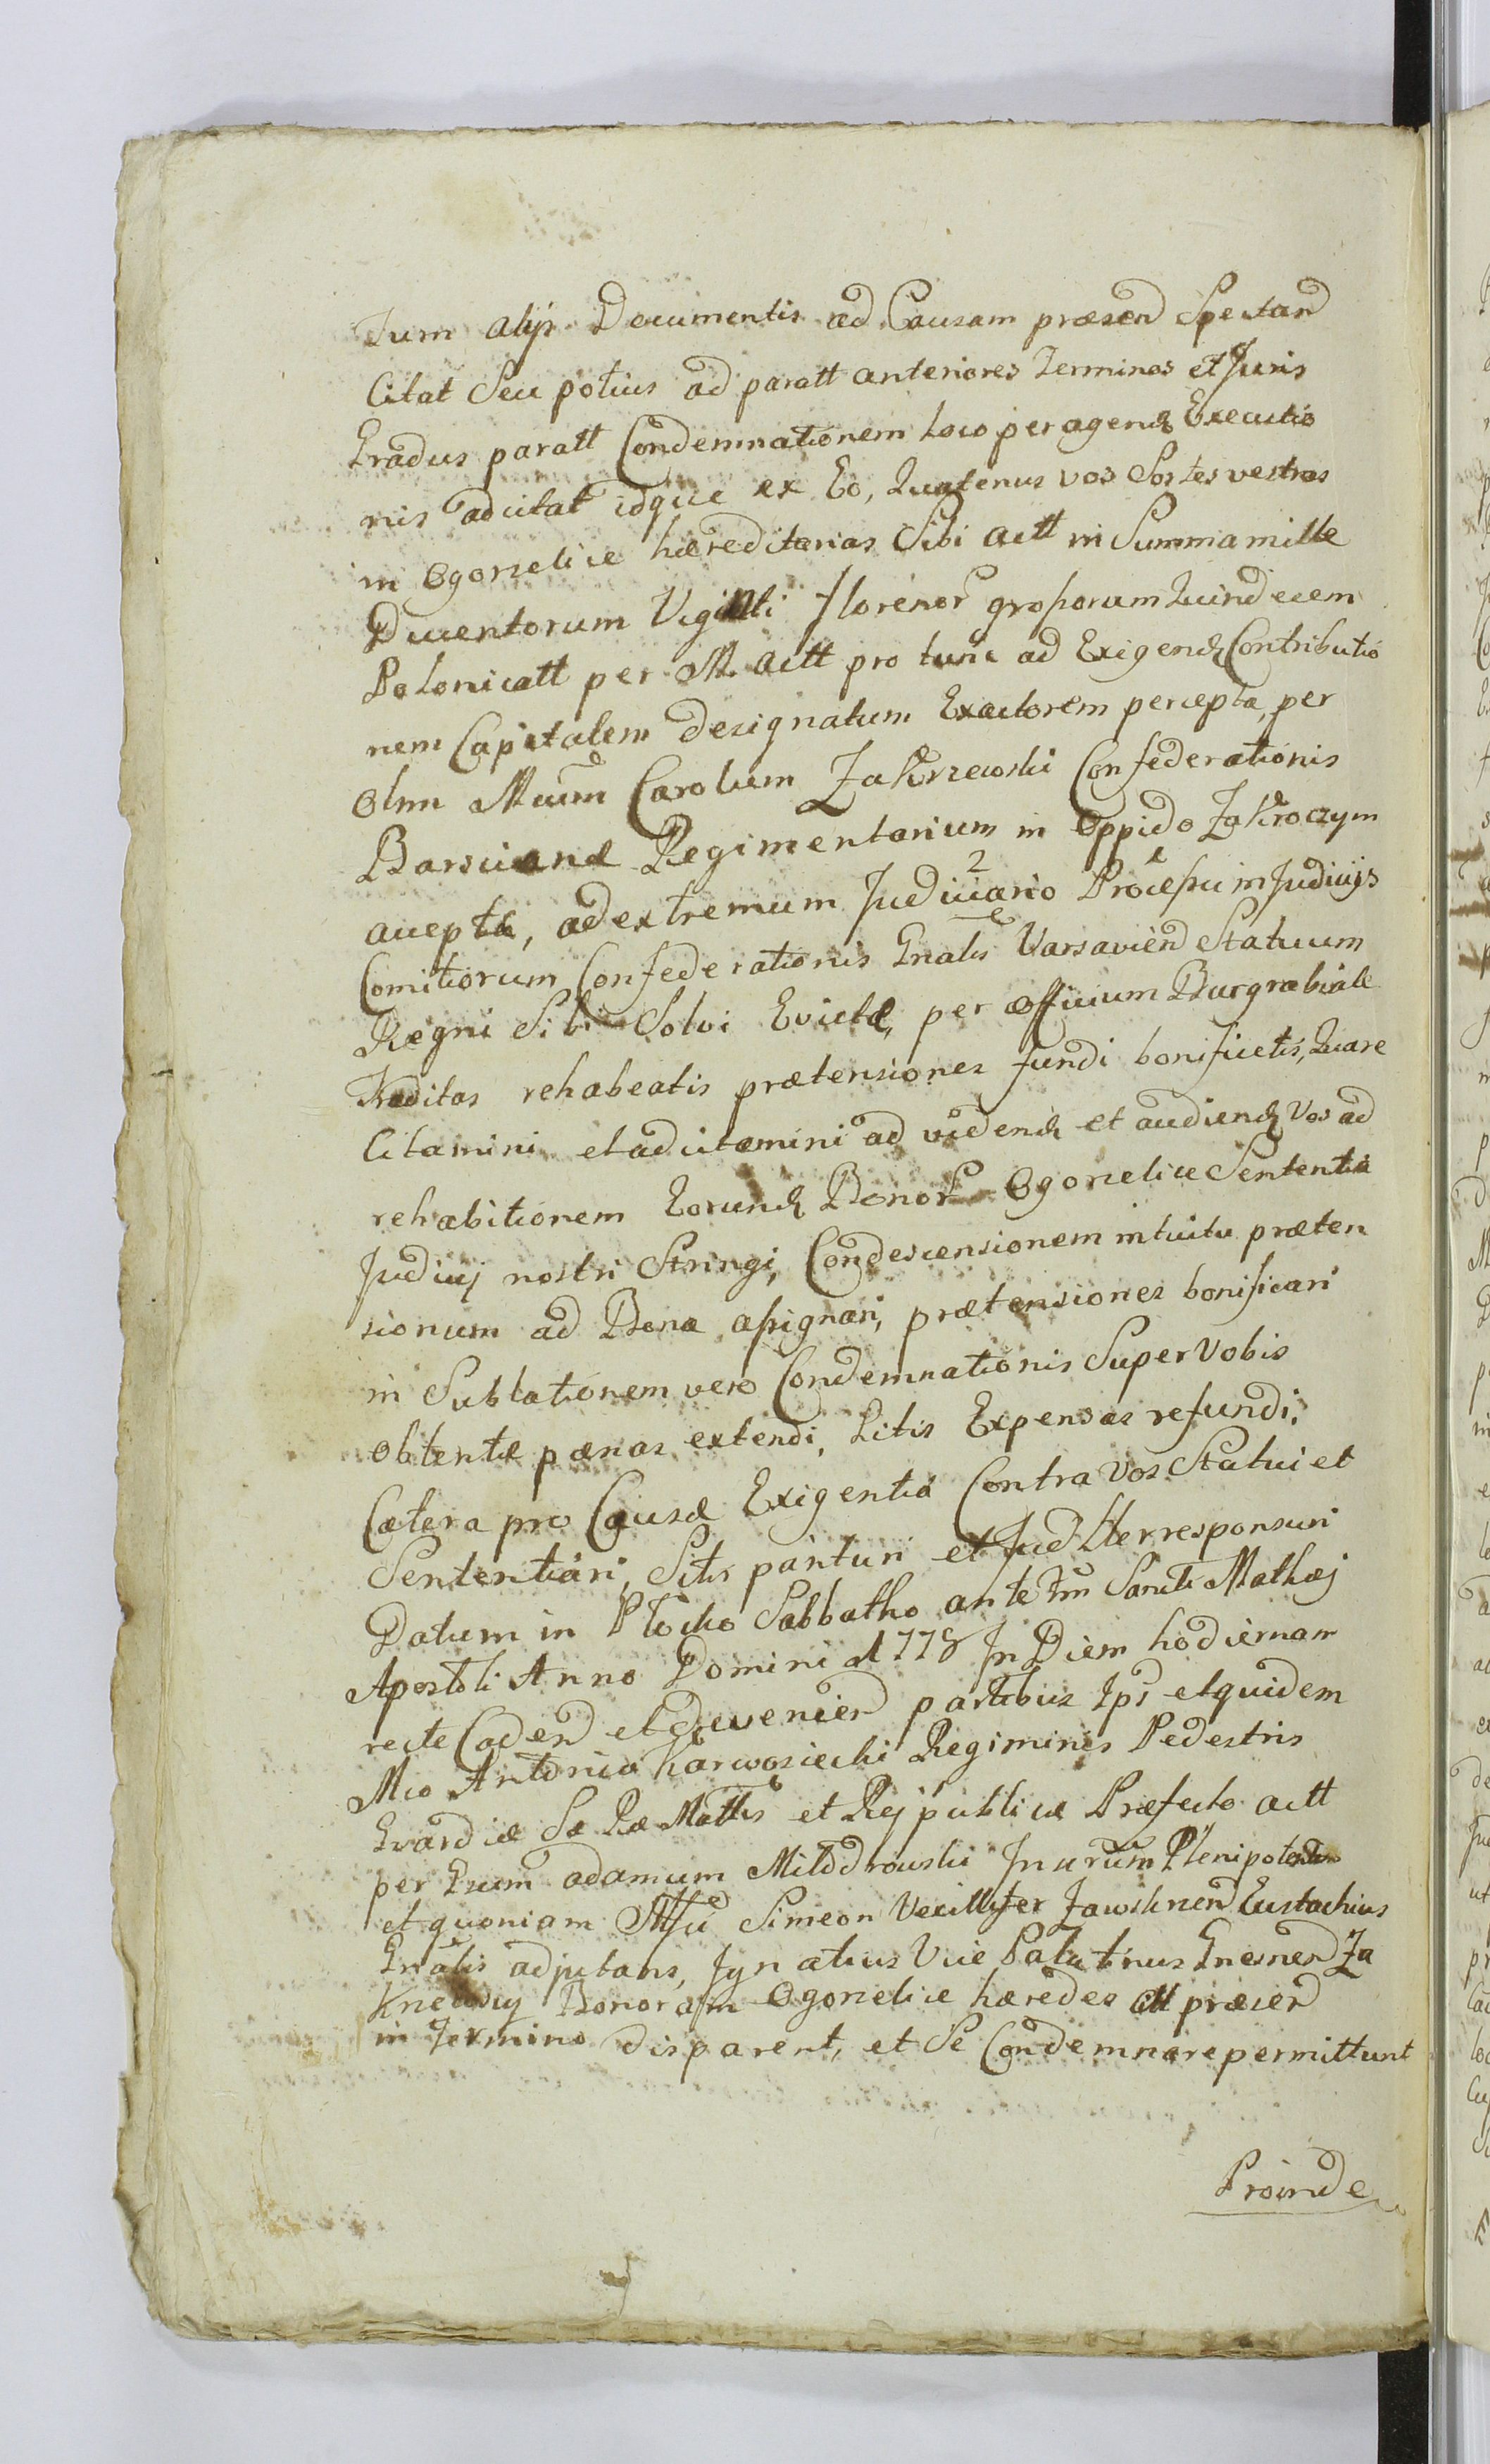 Tum alijs Documentis ad Causam præsend Spectand
Citat Seu potius ad paratt anteriores Terminos et Juris
Gradus paratt Condemnationem loco peragend Executio
nis adcitat idque ex Eo, Quatenus vos Sortes vestras
in Ogonelice hæreditarias Sibi actt in Summa mille
Ducentorum Viginti florenor grossorum Quindecem
Polonicatt per M. actt pro tunc ad Exigend Contributio
nem Capitalem designatum Exactorem percepta, per
Olim Mcum Carolum Zakrzewski Confederationis
Barscianæ Regimentarium in Oppido Zakroczym
accepta, ad extremum Judiciario Processu in Judicijs
Comitiorum Confederationis Gnalis Varsaviend Statuum
Regni Sibi Solvi Evictæ, per officium Burgrabiale
Traditas rehabeatis prætensiones fundi bonificetis, Quare
Citamini et adcitamini ad vidend et audiend Vos ad
rehabitionem Eorund Bonor Ogonelice Sententia
Judicij nostri Stringi, Condescensionem intuitu præten
sionum ad Bona assignari, prætensiones bonificari
in Sublationem vero Condemnationis Super Vobis
obtentæ pænas extendi, Litis Expensas refundi,
Cætera pro Causæ Exigentia Contra Vos Statui et
Sententiari, Sitis parituri et Jud tter responsuri
Datum in Plocko Sabbatho ante Ftm Sancti Mathæj
Apostoli Anno Domini 1778 In Diem hodiernam
recte Cadend et devenied partibus Ips et quidem
Mco Antonio Karwosiecki Regiminis Pedestris
Gvardiæ Sæ Ræ Mattis et Reipublicæ Præfecto actt
per Gsum adamum Milodrowski Jn urum Plenipotentem
et quoniam Simeon Vexillifer Zawskrnend Eustachius
Gnalis adjutans, Ignatius Vice Palatinus Gnesnend Za
Bonorum Ogonelice hæredes citt præsend
in Termino disparent, et Se Condemnare permittunt
Proinde